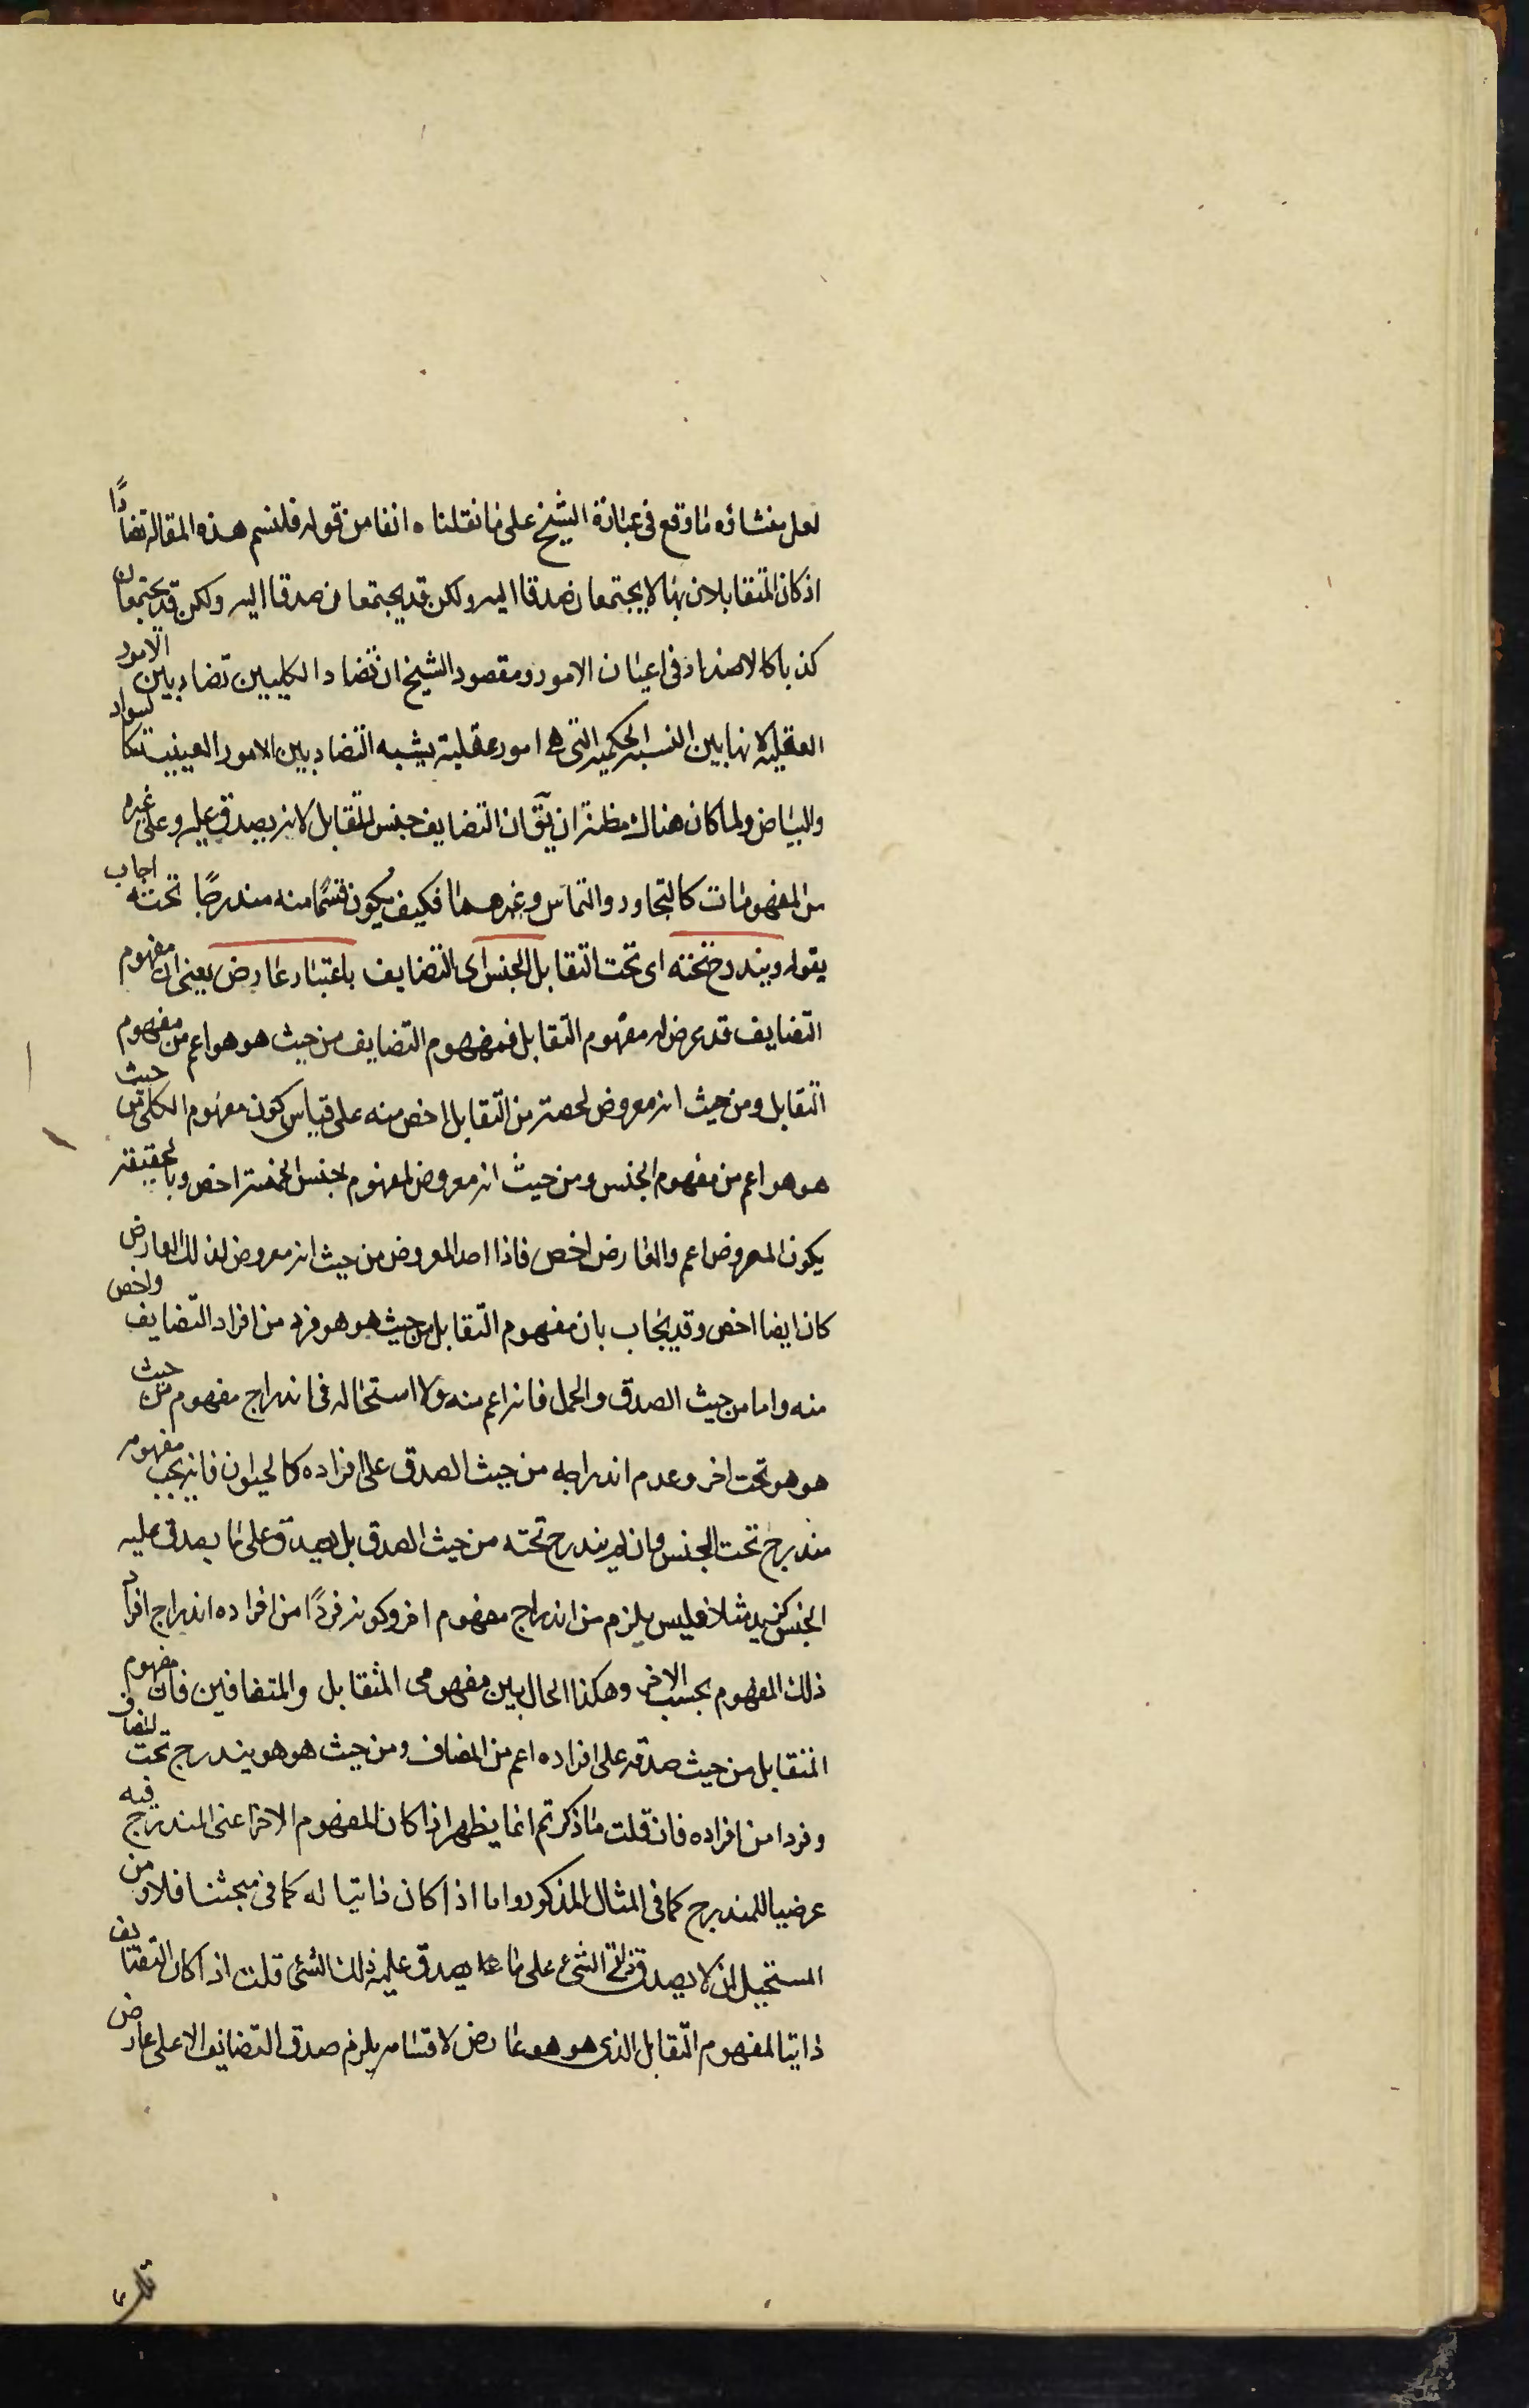 لعل منشاؤه ما وقع فى عبارة الشيخ على ما نقلناه انفا من قوله فلنسم هذه المقالة تضادًا
اذ كان المتقابلان بها لا يجتمعان صدقا اليه ولكن قد يجتمعان صدقا اليه ولكن قد يجتمعان
كذبا كالاضداد فى اعيان الامور ومقصود الشيخ ان تضاد الكليين تضاد بين الامور
العقلية لانها بين النسبة الحكمية التى هى امور عقلية يشبه التضاد بين الامور العينية كالسواد
والبياض ولما كان هناك مظنة ان يقٓ ان التضايف جنس للتقابل لانه يصدق عليه وعلى غيره
من المفهومات كالتجاور والتماس وغيرهما فكيف يكون قسمًا منه مندرجًا تحته اجاب
بقوله ويندرج تحته اى تحت التقابل الجنس اى التضايف باعتبار عارض يعنى ان مفهوم
التضايف قد عرض له مفهوم التقابل فمفهوم التضايف من حيث هو هو اعم من مفهوم
التقابل ومن حيث انه معروض لحصة من التقابل اخص منه على قياس كون مفهوم الكلى من حيث
هو هو اعم من مفهوم الجنس ومن حيث انه معروض لمفهوم جنس الخمسة اخص وبالحقيقة
يكون المعروض اعم والعارض اخص فاذا اخذ المعروض من حيث انه معروض لذلك العارض
كان ايضا اخص وقد يجاب بان مفهوم التقابل من حيث هو هو فرد من افراد التضايف واخص
منه واما من حيث الصدق والحمل فانه اعم منه ولا استحالة فى اندراج مفهوم من حيث
هو هو تحت اخر وعدم اندراجه من حيث الصدق على افراده كالحيوان فانه بحسب مفهومه
مندرج تحت الجنس وان لم يندرج تحته من حيث الصدق بل يصدق على ما يصدق عليه
الجنس كزيد مثلا فليس يلزم من اندراج مفهوم اخر وكونه فردًا من افراده اندراج افراد
ذلك المفهوم بحسب الاخر وهكذا الحال بين مفهومى المتقابل والمتضافين فان مفهوم
المتقابل من حيث صدقه على افراده اعم من المضاف ومن حيث هو هو يندرج تحت المضاف
وفردا من افراده فان قلت ما ذكرتم انما يظهر اذا كان المفهوم الاخر اعنى المندرج فيه
عرضيا للمندرج كما فى المثال المذكور واما اذا كان ذاتيا له كما فى مبحثنا فلا ومن
المستحيل ان لا يصدق ذاتى الشئ على ما يصدق عليه ذلك الشئ قلت اذا كان التضايف
ذاتيا لمفهوم التقابل الذى هو هو عارض لاقسامه يلزم صدق التضايف الا على عارض